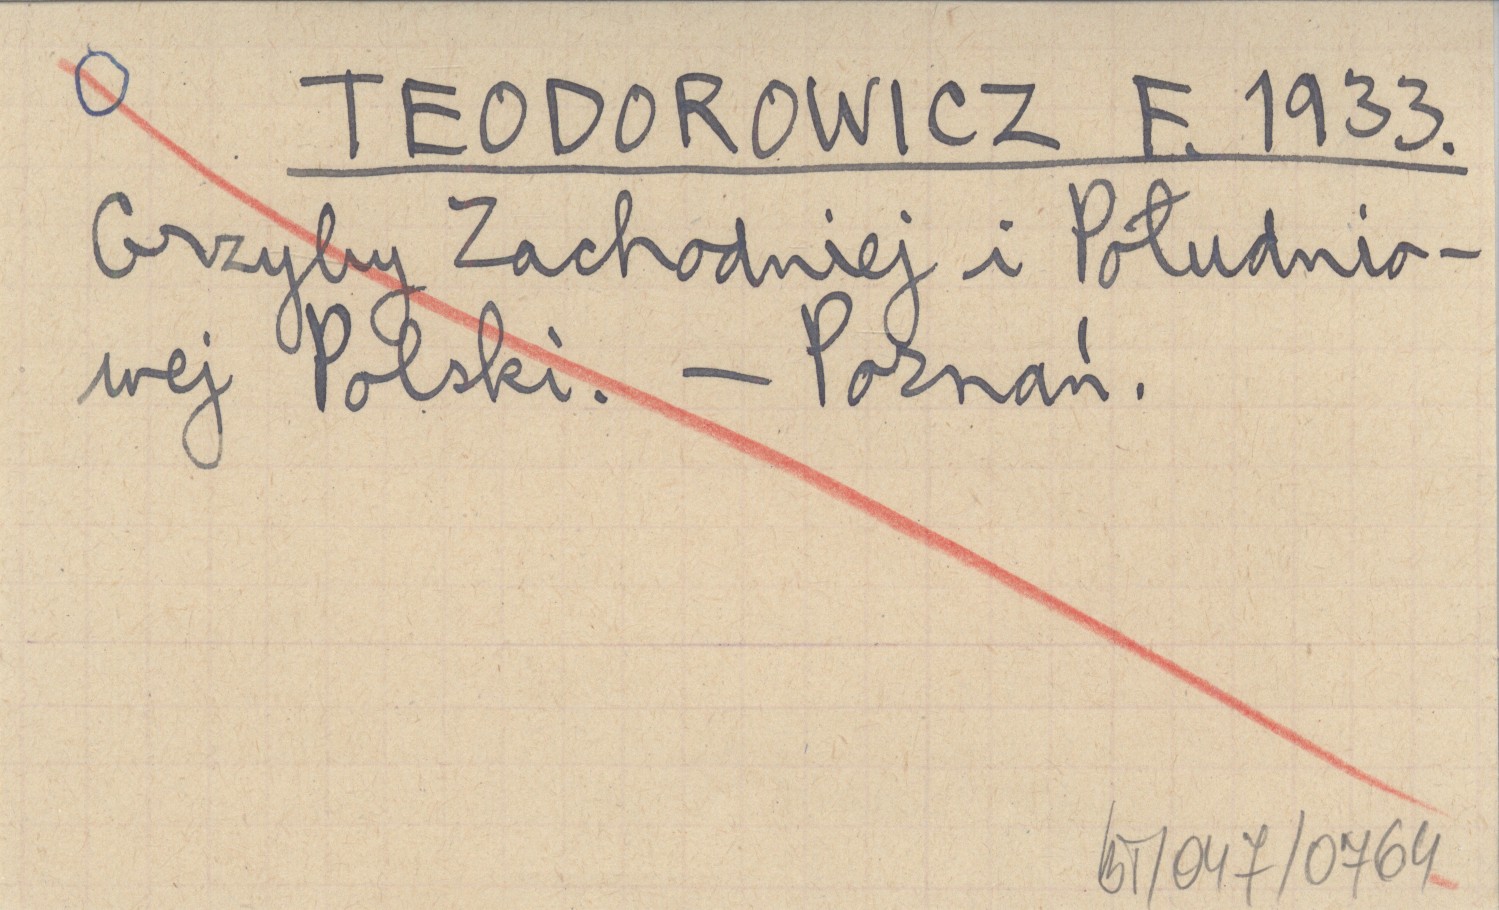 TEODOROWICZ F. 1933.
Grzyby Zachodniej i Południo-
wej Polski. – Poznań.
BT/047/0764